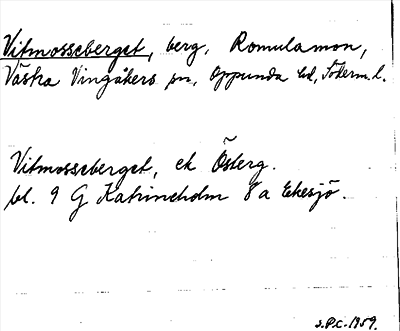 Vitmosseberget, berg, Romulamon,
Västra Vingåkers sn, Oppunda hd, Söderm. l.
Vitmosseberget, ek Österg.
bl. 9 G Katrineholm 8 a Ekesjö.
S.P.C. 1959.